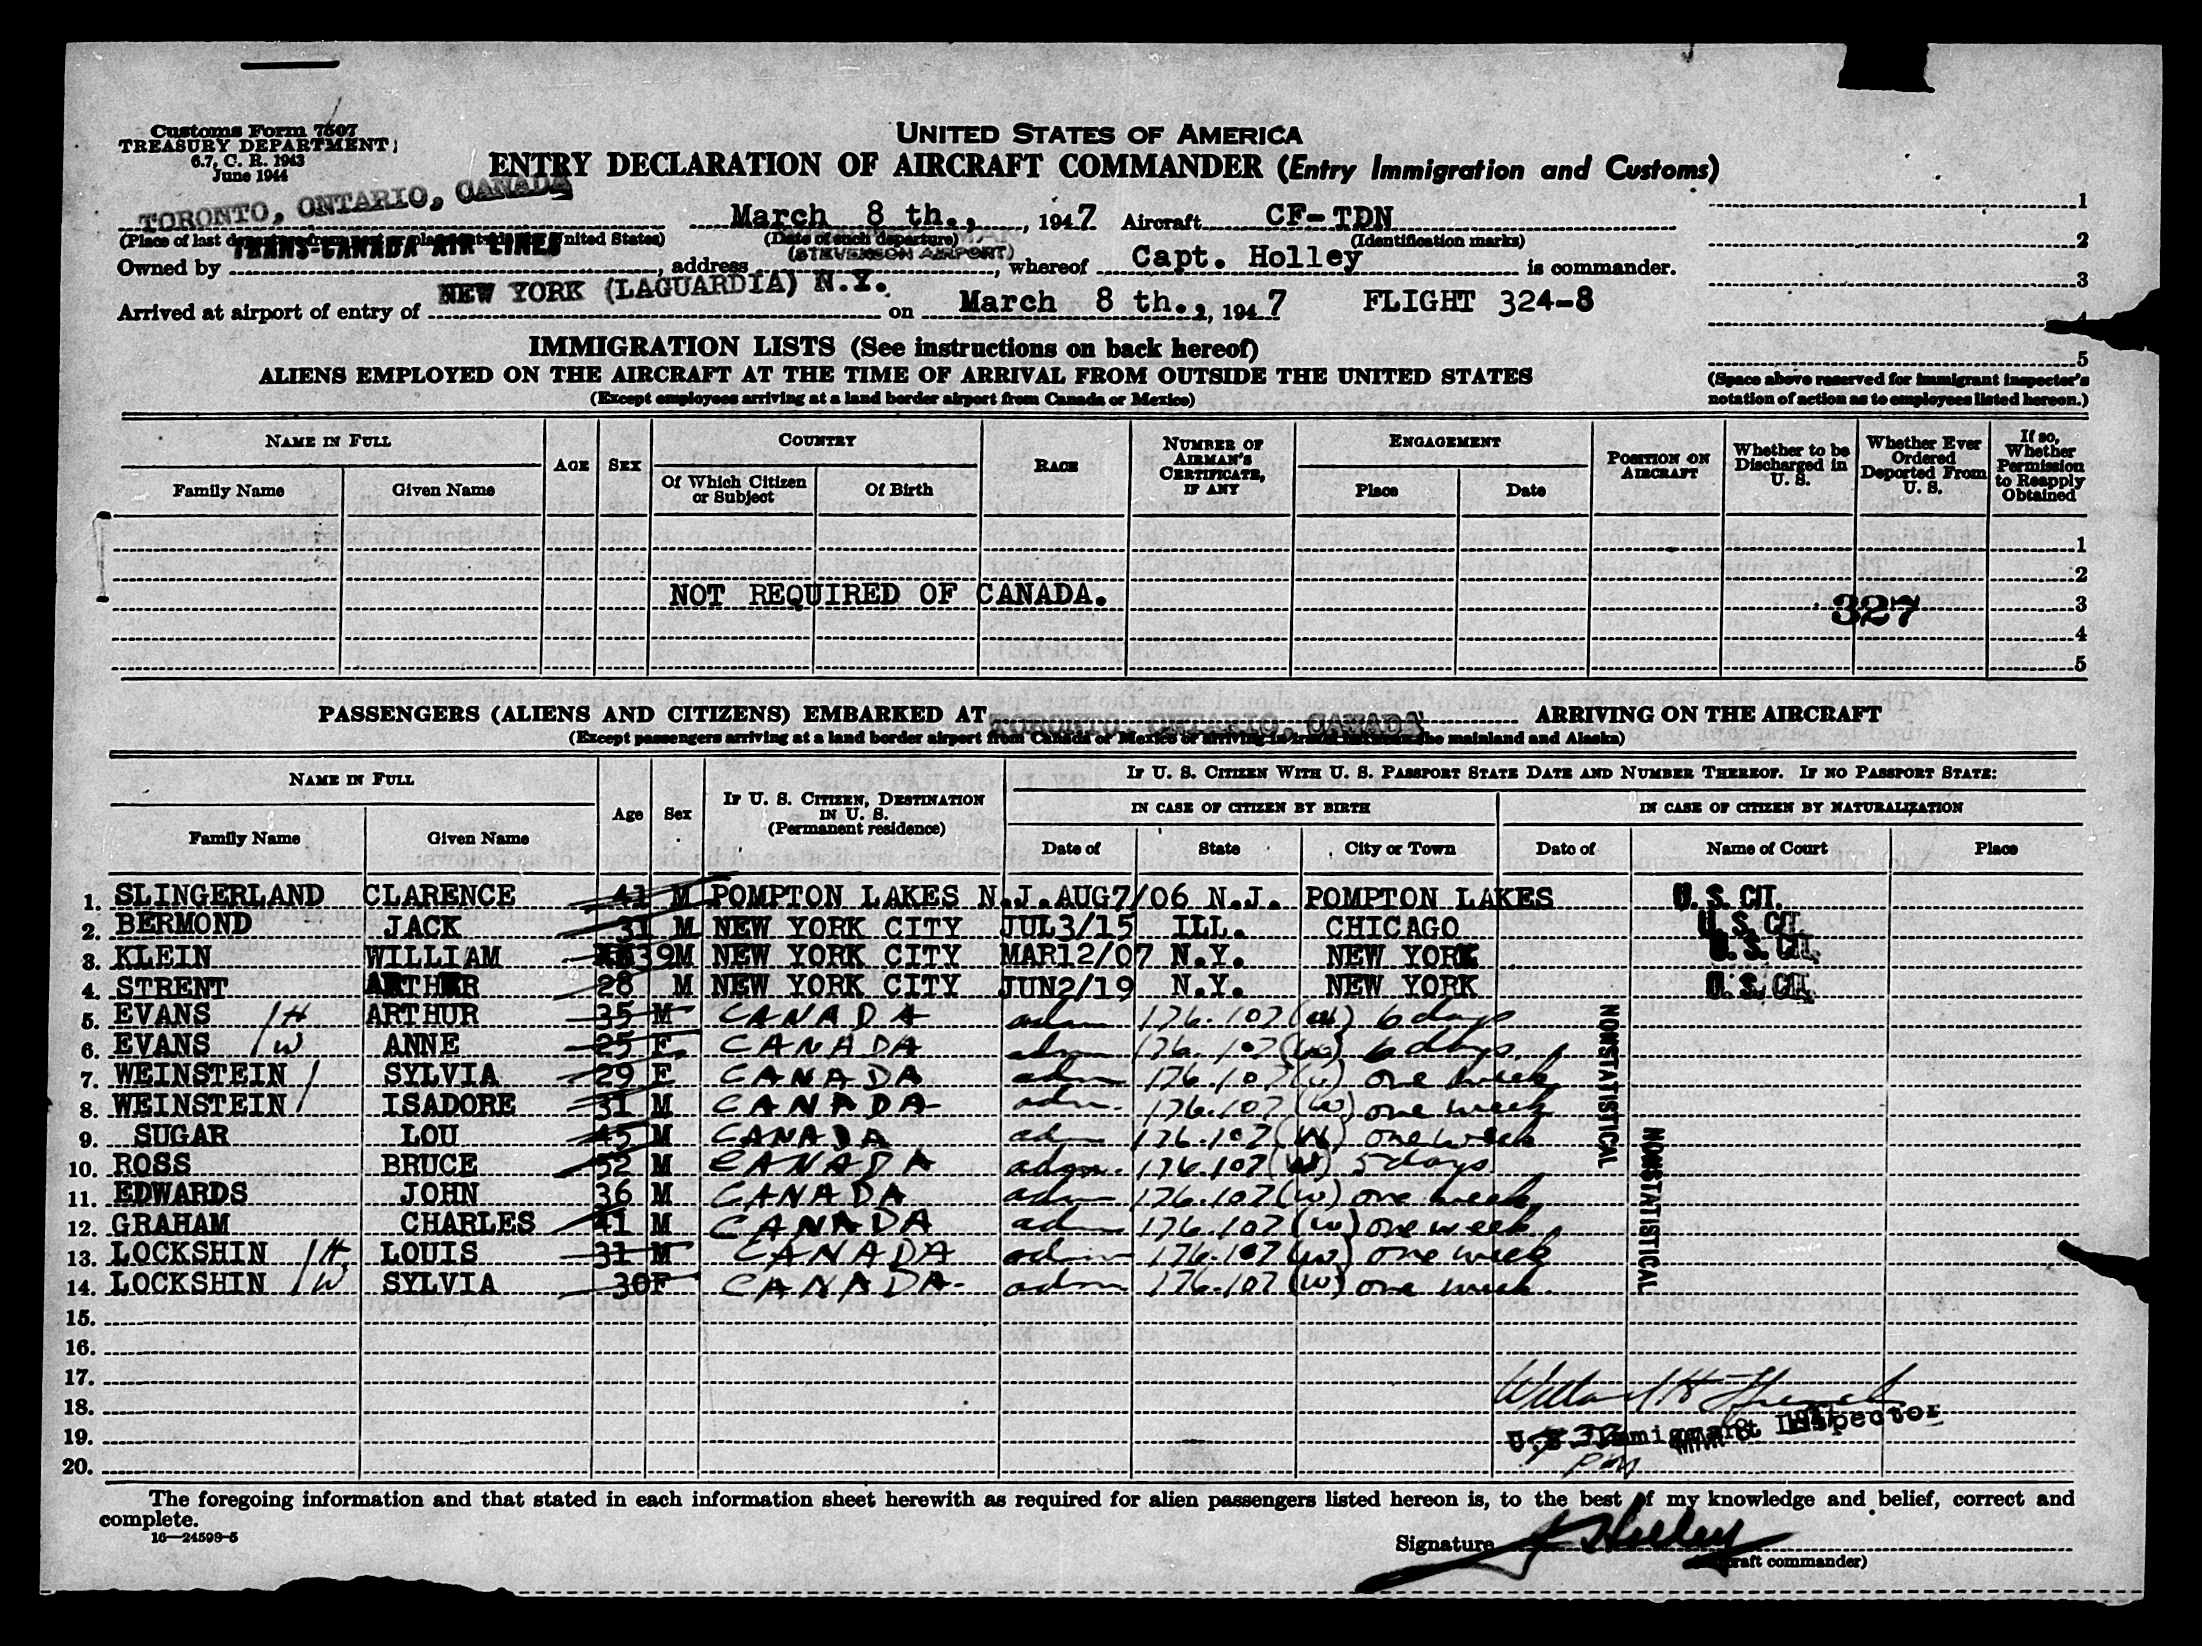 Customs Form 7507
TREASURY DEPARTMENT
6.7, C. R. 1943
June 1944
UNITED STATES OF AMERICA
ENTRY DECLARATION OF AIRCRAFT COMMANDER (Entry Immigration and Customs)
TORONTO, ONTARIO, CANADA March 8 th., , 1947 Aircraft CF-TDN
(Place of last departure from port or place outside the United States) (Date of such departure) (Identification marks)
Owned by TRANS-CANADA AIR LINES , address (STEVENSON AIRPORT) , whereof Capt. Holley is commander.
Arrived at airport of entry of NEW YORK (LAGUARDIA) N.Y. on March 8 th., , 1947 FLIGHT 324-8
1
2
3
4
5
(Space above reserved for immigrant inspector's
notation of action as to employees listed hereon.)
IMMIGRATION LISTS (See instructions on back hereof)
ALIENS EMPLOYED ON THE AIRCRAFT AT THE TIME OF ARRIVAL FROM OUTSIDE THE UNITED STATES
(Except employees arriving at a land border airport from Canada or Mexico)
NAME IN FULL AGE SEX COUNTRY RACE NUMBER OF AIRMAN'S CERTIFICATE, IF ANY ENGAGEMENT POSITION ON AIRCRAFT Whether to be Discharged in U. S. Whether Ever Ordered Deported From U. S. If so, Whether Permission to Reapply Obtained
Family Name Given Name Of Which Citizen or Subject Of Birth Place Date
1
2
NOT REQUIRED OF CANADA. 327 3
4
5
PASSENGERS (ALIENS AND CITIZENS) EMBARKED AT TORONTO, ONTARIO, CANADA ARRIVING ON THE AIRCRAFT
(Except passengers arriving at a land border airport from Canada or Mexico or arriving in travel between the mainland and Alaska)
NAME IN FULL Age Sex IF U. S. CITIZEN, DESTINATION IN U. S. (Permanent residence) IF U. S. CITIZEN WITH U. S. PASSPORT STATE DATE AND NUMBER THEREOF. IF NO PASSPORT STATE:
IN CASE OF CITIZEN BY BIRTH IN CASE OF CITIZEN BY NATURALIZATION
Family Name Given Name Date of State City or Town Date of Name of Court Place
1. SLINGERLAND CLARENCE 41 M POMPTON LAKES N.J. AUG7/06 N.J. POMPTON LAKES U. S. CIT.
2. BERMOND JACK 31 M NEW YORK CITY JUL3/15 ILL. CHICAGO U. S. CIT.
3. KLEIN WILLIAM 39 M NEW YORK CITY MAR12/07 N.Y. NEW YORK U. S. CIT.
4. STRENT ARTHUR 28 M NEW YORK CITY JUN2/19 N.Y. NEW YORK U. S. CIT.
5. EVANS H ARTHUR 35 M CANADA adm 176.107 (w) 6 days
6. EVANS W ANNE 25 F CANADA adm 176.107 (w) 6 days
7. WEINSTEIN SYLVIA 29 F CANADA adm 176.107 (w) one week
8. WEINSTEIN ISADORE 31 M CANADA adm. 176.107 (w) one week
9. SUGAR LOU 45 M CANADA adm 176.107 (w) one week
10. ROSS BRUCE 52 M CANADA adm. 176.107 (w) 5 days
11. EDWARDS JOHN 36 M CANADA adm 176.107 (w) one week
12. GRAHAM CHARLES 41 M CANADA adm 176.107 (w) one week
13. LOCKSHIN H LOUIS 31 M CANADA adm 176.107 (w) one week
14. LOCKSHIN W SYLVIA 30 F CANADA adm 176.107 (w) one week
NONSTATISTICAL
NONSTATISTICAL
15.
16.
17.
18.
19. U. S. Immigrant Inspector
20.
The foregoing information and that stated in each information sheet herewith as required for alien passengers listed hereon is, to the best of my knowledge and belief, correct and
complete.
16—24598-5
Signature Holley
(Aircraft commander)